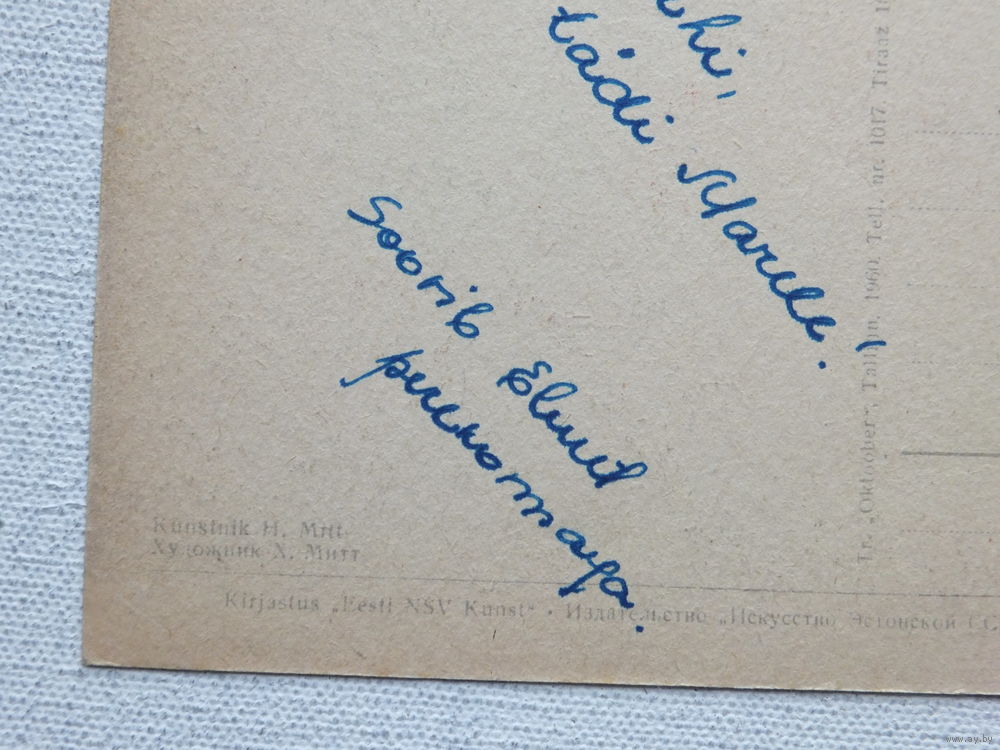 tädi Marule!
Soovib Elmut
perekonnaga.
Kunstnik H. Mitt
Художник Х. Митт
Kirjastus „Eesti NSV Kunst“ • Издательство „Искусство Эстонской СС
Tr. „Oktoober“, Tallinn, 1960. Tell. nr. 1017. Tiraaž 1
www.ay.by